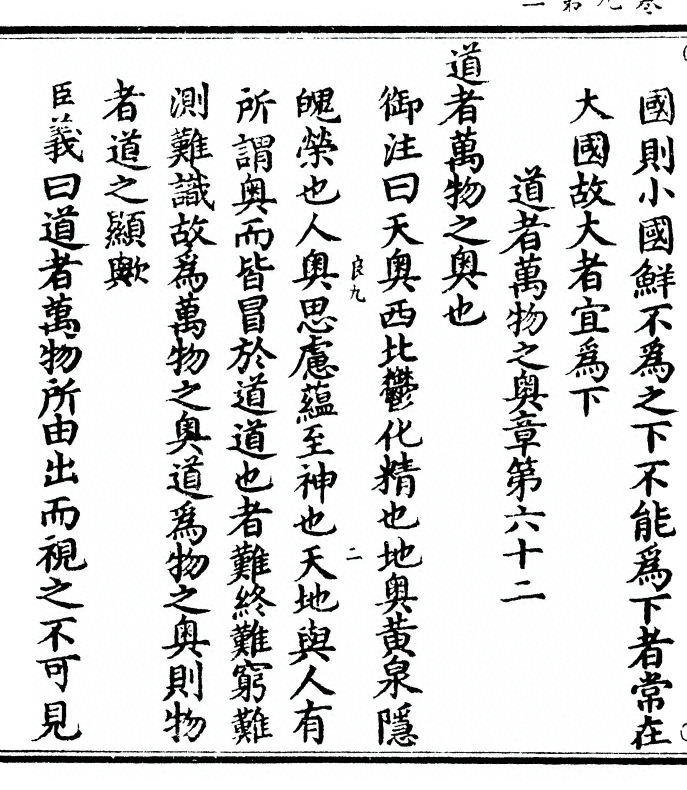 國則小國鮮不為之下不能為下者常在
大國故大者宜為下
道者萬物之奧章第六十二
道者萬物之奧也
御注曰天奧西北鬱化精也地奧黃泉隱
良九
二
魄榮也人奧思慮蘊至神也天地與人有
所謂奧而皆冒於道道也者難終難窮難
測難識故為萬物之奧道為物之奧則物
者道之顯歟
臣義曰道者萬物所由出而視之不可見